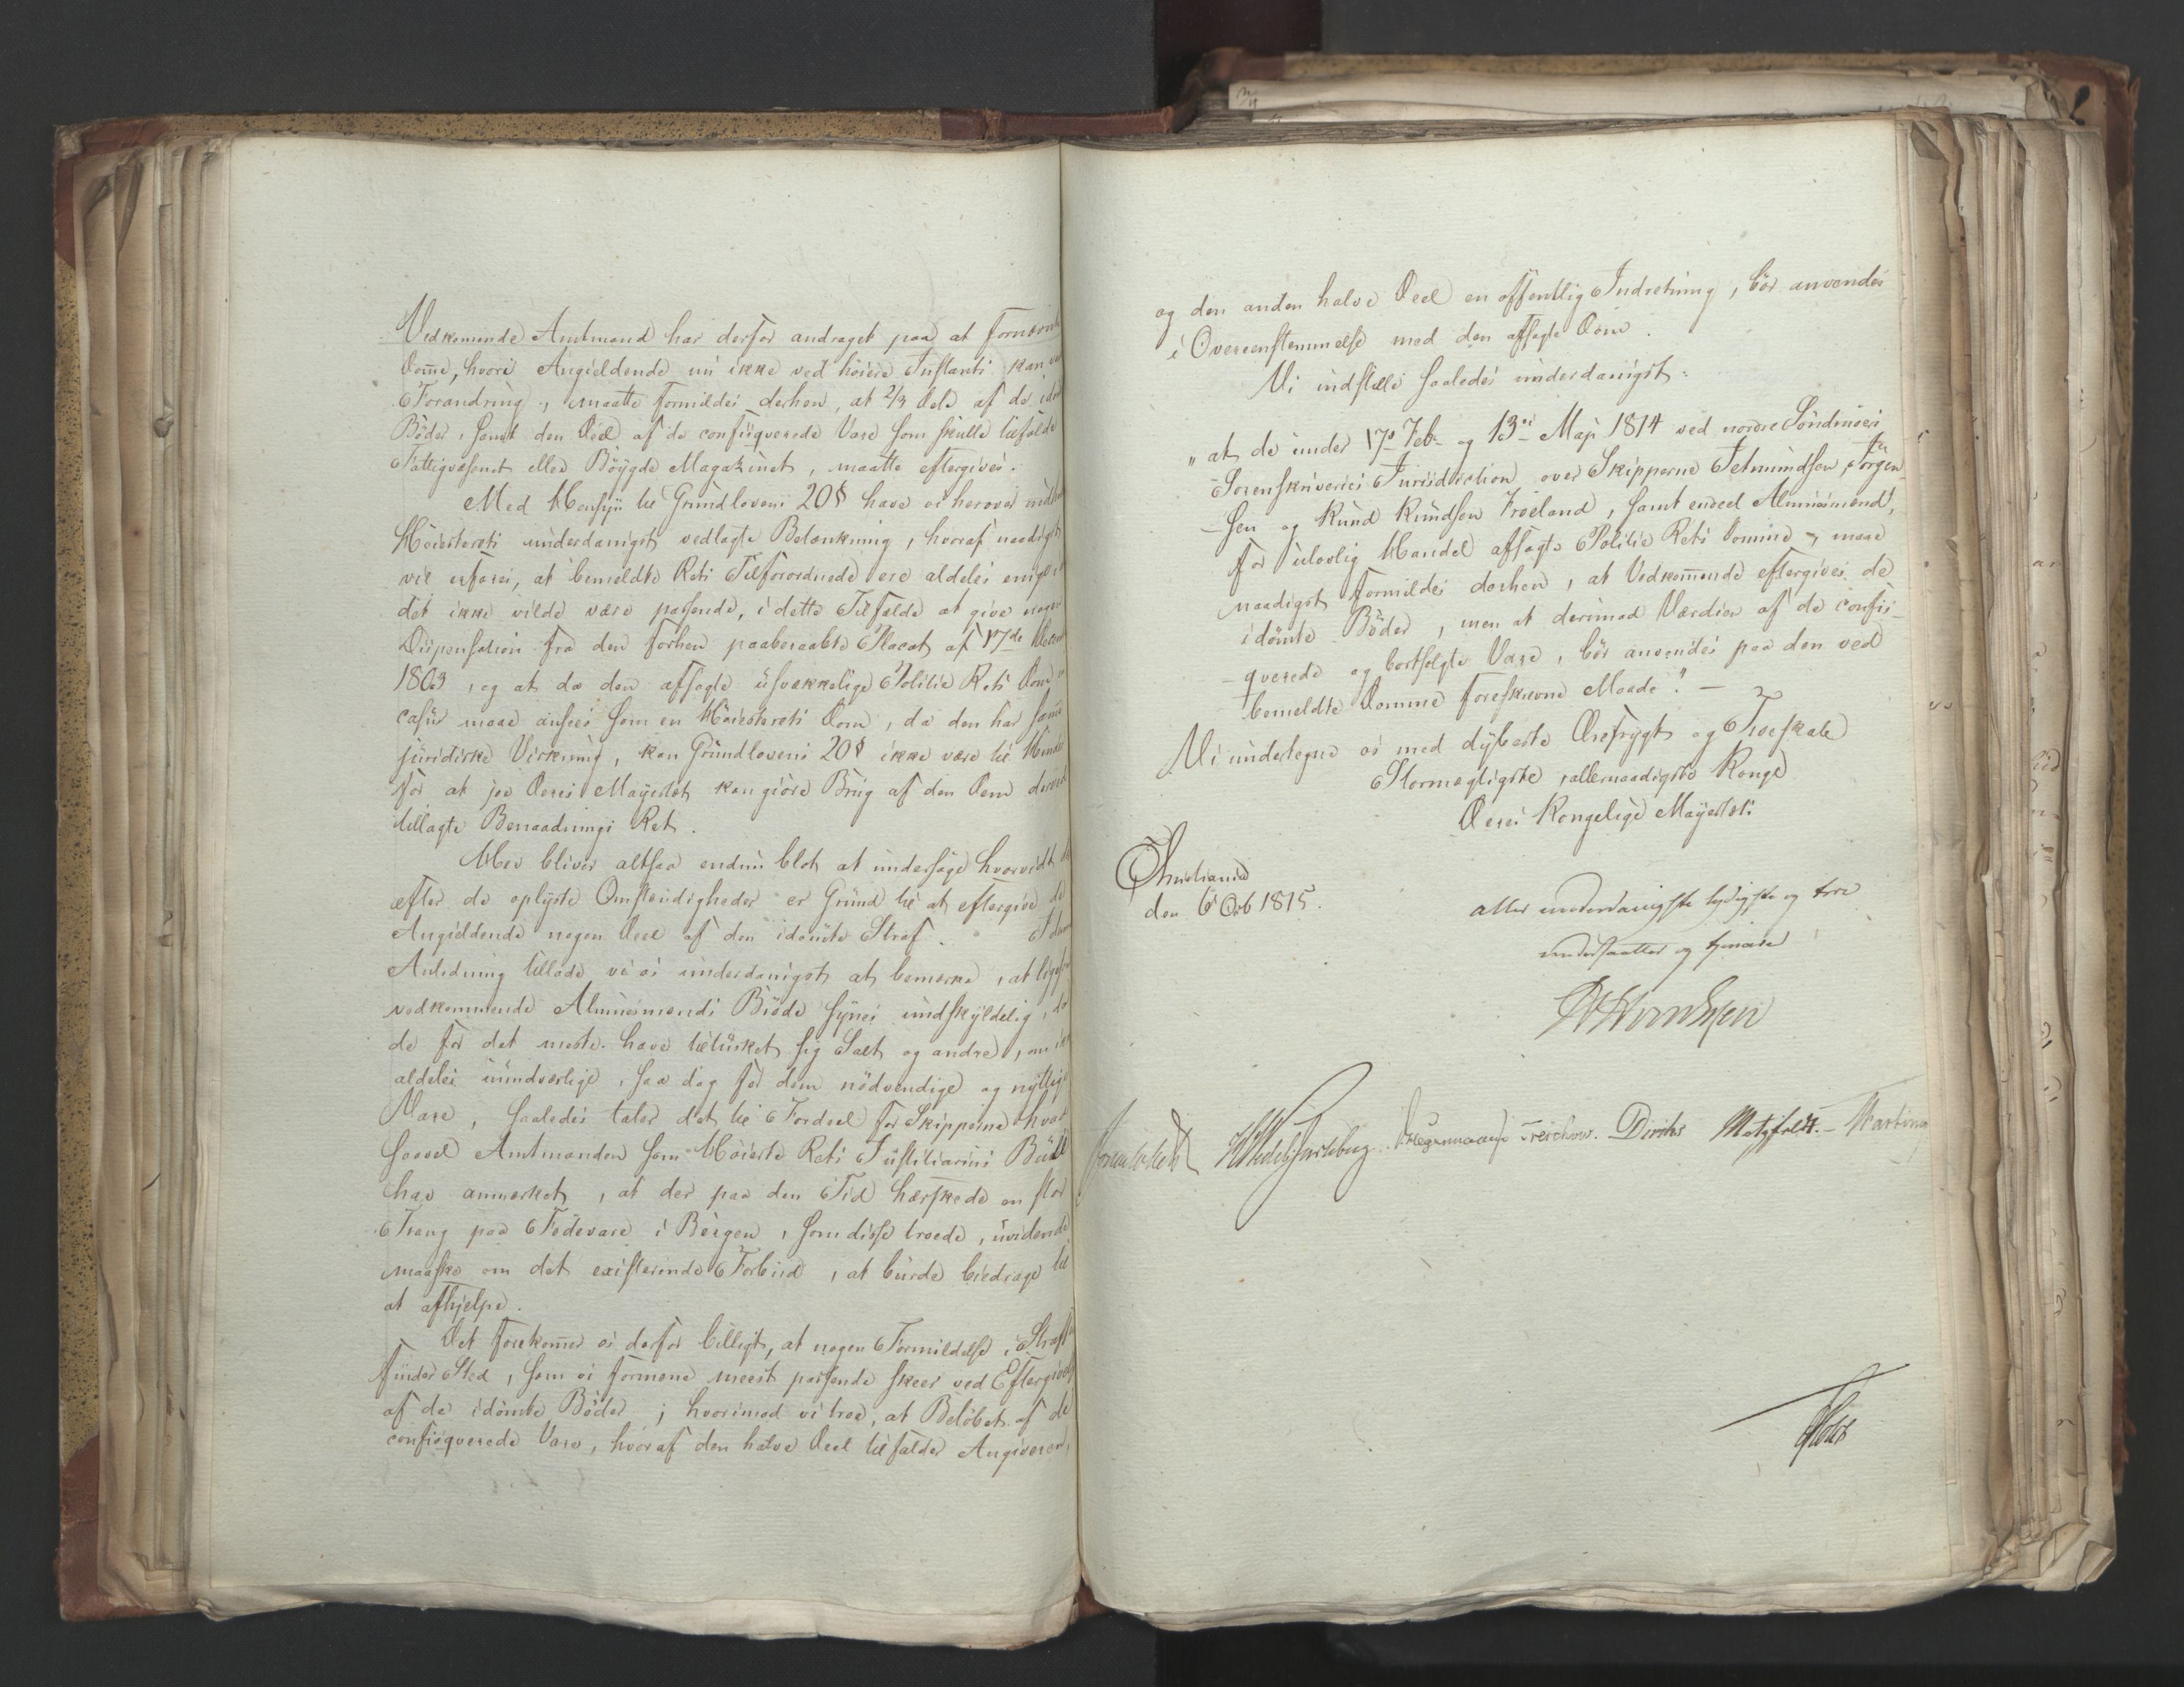 Vedkomende Amtmand har derfor andraget paa at fornævnte
Domme, hvori Angieldende nu ikke ved höiere Instants kan
Forandring, maatte formildes derhen, at 2/3 Dele af de
Böder, samt den Deel af de confisqverede Vare som skulle tilfalde
Fattigvæsenet eller Böygde Magazinet, maatte eftergives.
Med Hensyn til Grundlovens 20§ have vi herover
Höiesterets underdanigst vedlagte Betænkning, hvoraf naadigst
vil erfares, at bemeldte Rets Tilforordnede ere aldeles enige i
det ikke vilde være passende, i dette Tilfælde at give nogen
Dispensation fra den forhen paaberaabte Placat af 17de
1803, og at da den afsagte usvækkelige Politie Rets Dom
casu maae ansees som en Höiesterets Dom, da den har samme
juridiske Virkning, kan Grundlovens 20§ ikke være til Hinder
for at jo Deres Mayestæt kan giöre Brug af den Dem derved
tillagte Benaadnings Ret.
Her bliver altsaa endnu blot at undersöge hvorvidt der
efter de oplyste Omstændigheder er Grund til at eftergive de
Angieldende nogen Deel af den idömte Straf. I denne
Anledning tillade vi os underdanigst at bemærke, at ligesom
vedkommende Almuesmænds Bröde synes undskyldelig, da
de for det meste have tiltusket sig Salt og andre, om ikke
aldeles uundværlige, saa dog for dem nödvendige og nyttige
Vare, saaledes taler det til Fordeel for Skipperne hvad
saavel Amtmanden som Höieste Rets Justitiarius Bull
har anmærket, at der paa den Tid herskede en stor
Trang paa Födevare i Bergen, som disse troede, uvidende
maaske om det existerende Forbud, at burde bidrage til
at afhjelpe.
Det forekommer os derfor billigt, at nogen Formildelse i Straffen
finder Sted, som vi formene meest passende skeer ved Eftergivelse
af de idömte Böder; hvorimod vi troe, at Belöbet af de
confisqverede Vare, hvoraf den halve Deel tilfalder Angiveren,
og den anden halve Deel en offentlig Indretning, bör anvendes
i Overeenstemmelse med den afsagte Dom.
Vi indstille saaledes underdanigst:
"at de under 17de Feb. og 13de Maji 1814 ved nordre Söndmörs
Sorenskriveries Jurisdiction over Skipperne Jetmundsen, Jörgen-
sen og Knud Knudsen Fröeland, samt endeel Almuesmænd,
for ulovlig Handel afsagte Politie Rets Domme, maae
naadigst formildes derhen, at Vedkommende eftergives de
idömte Böder, men at derimod Værdien af de confis-
qverede og bortsolgte Vare, bör anvendes paa den ved
bemeldte Domme foreskrevne Maade." —
Vi undertegne os med dybeste Ærefrygt og Troeskab
Stormægtigste, allernaadigste Konge
Deres Kongelige Mayestæts
Christiania
den 6 Octb 1815.
aller underdanigste lydigste og troe
undersaatter og tjenere
Sommerhielm HWedelJarlsberg Hegermann Treschow. Diriks Motzfeldt. — Harbou
Holst